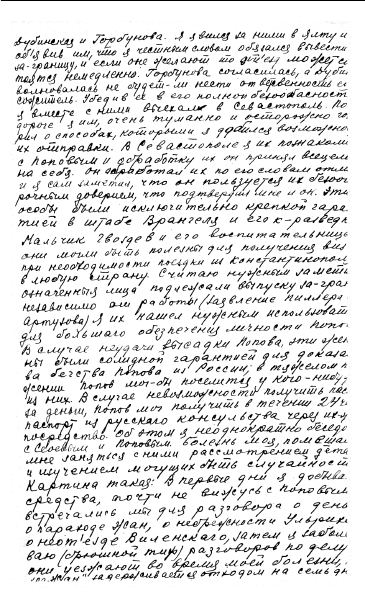 Дубинская и Горбунова. Я явился за ними в Ялту и
об'явив им, что я честным словом обязался вывести
за-границу, и если они желают то от'езд может со
немедленно. Горбунова согласилась, а Дуби
волновалась не будет-ли нести ответственность ее
Убедив ее в его полной безопасност
я вместе с ними выехал в Севастополь. По
дороге я им, очень туманно и осторожно го
рил о способах, которыми я добился возможно
их отправки. В Севастополе я их познаком
с Поповым и обработку их он принял всецело
на себя. Он обработал их по его словам отли
и я сам заметил, что он пользуется их безог
рочным доверием, что подтвердил мне и он. Эти
особы были исключительно крепкой гара
тией в штабе Врангеля и его к-развед
Мальчик Гвоздев и его воспитательниц
они могли быть полезны для получения виз
при необходимости поездки из Константинопол
в любую страну. Считаю нужным замети
означенных лица подлежали выпуску за-гран
независимо от работы (заявление Пиллера
Артузова) я их нашел нужным использоват
для большаго обезпечения личности Попо
В случае неудачи высадки Попова, эти же
ны были солидной гарантией для доказа
ва бегства Попова из России; в тяжелом п
жении Попов мог-бы поселится у кого-нибу
из них. В случае невозможности получить
за деньги, Попов мог получить в течении 24 ч
паспорт из русскаго консульства через их
посредство. Об этом я неоднократно беседо
с Соевым и Поповым. Болезнь моя, помешал
мне занятся с ними рассмотрением дета
и изучением могущих быть случайност
Картина такая: В первые дни я достав
средства, почти не вижусь с Поповым
встречались мы для разговора о день
о пароходе Жан, о небрежности Ульриха
о неот'езде Виленскаго, затем я заболе
ваю (брюшной тиф) разговоров по делу
они уезжают во время моей болезни,
"Жан" задерживается отходом на семь дн